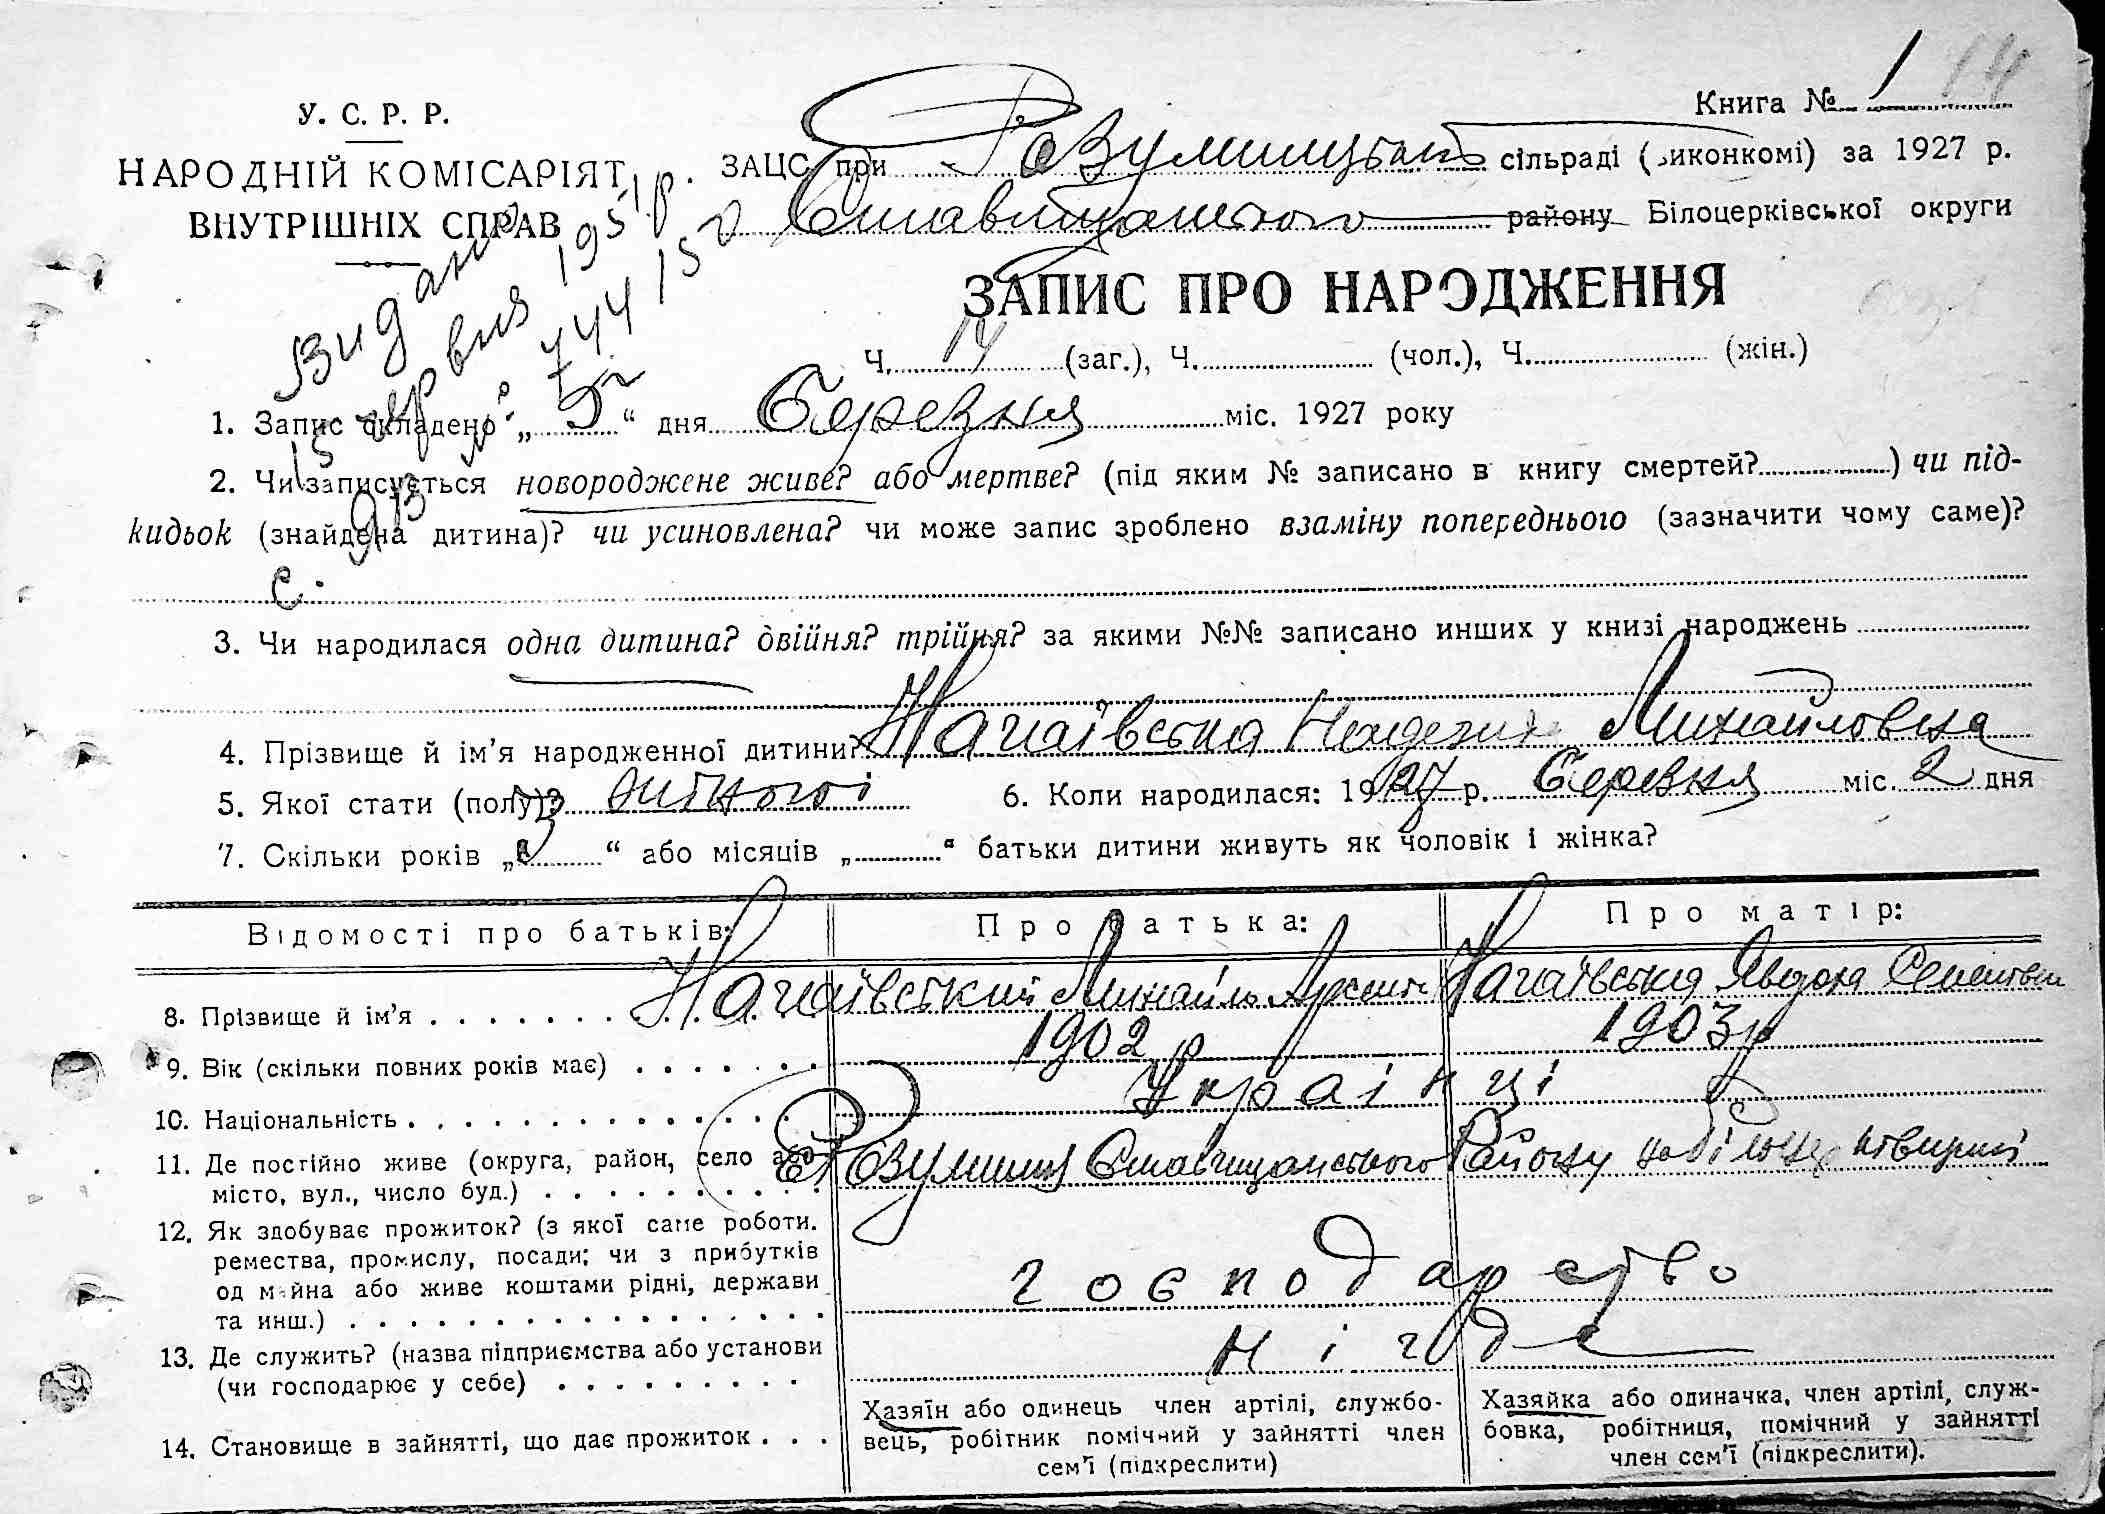 Книга № 1 14
У. С. Р. Р.
НАРОДНІЙ КОМІСАРІЯТ
ВНУТРІШНІХ СПРАВ
ЗАЦС при Розумницькій сільраді (виконкомі) за 1927 р.
Ставищанського району Білоцерківської округи
Видано
15 червня 1951 р.
№ 744150
ЗАПИС ПРО НАРОДЖЕННЯ
Ч. 14 (заг.), Ч. (чол.), Ч. (жін.)
1. Запис складено „ 5 “ дня Березня міс. 1927 року
2. Чи записується новороджене живе? або мертве? (під яким № записано в книгу смертей? ) чи під-
кидьок (знайдена дитина)? чи усиновлена? чи може запис зроблено взаміну попереднього (зазначити чому саме)?
3. Чи народилася одна дитина? двійня? трійня? за якими №№ записано инших у книзі народжень
4. Прізвище й ім’я народженної дитини? Нагаївська Надежда Михайловна
5. Якої стати (полу)? жіночої 6. Коли народилася: 1927 р. Березня міс. 2 дня
7. Скільки років „ 3 “ або місяців „ “ батьки дитини живуть як чоловік і жінка?
Відомості про батьків: Про батька: Про матір:
8. Прізвище й ім’я Нагаївський Михайль Нагаївська Явдоха
9. Вік (скільки повних років має) 1902 р 1903 р
10. Національність Українці
11. Де постійно живе (округа, район, село або
місто, вул., число буд.) Розумниці Ставищанського Району
12. Як здобуває прожиток? (з якої саме роботи.
ремества, промислу, посади; чи з прибутків
од майна або живе коштами рідні, держави
та инш.) господарство
13. Де служить? (назва підприємства або установи
(чи господарює у себе) нігде
14. Становище в зайнятті, що дає прожиток
Хазяїн або одинець член артілі, службо-
вець, робітник помічний у зайнятті член
сем’ї (підкреслити)
Хазяйка або одиначка, член артілі, служ-
бовка, робітниця, помічний у зайнятті
член сем’ї (підкреслити).